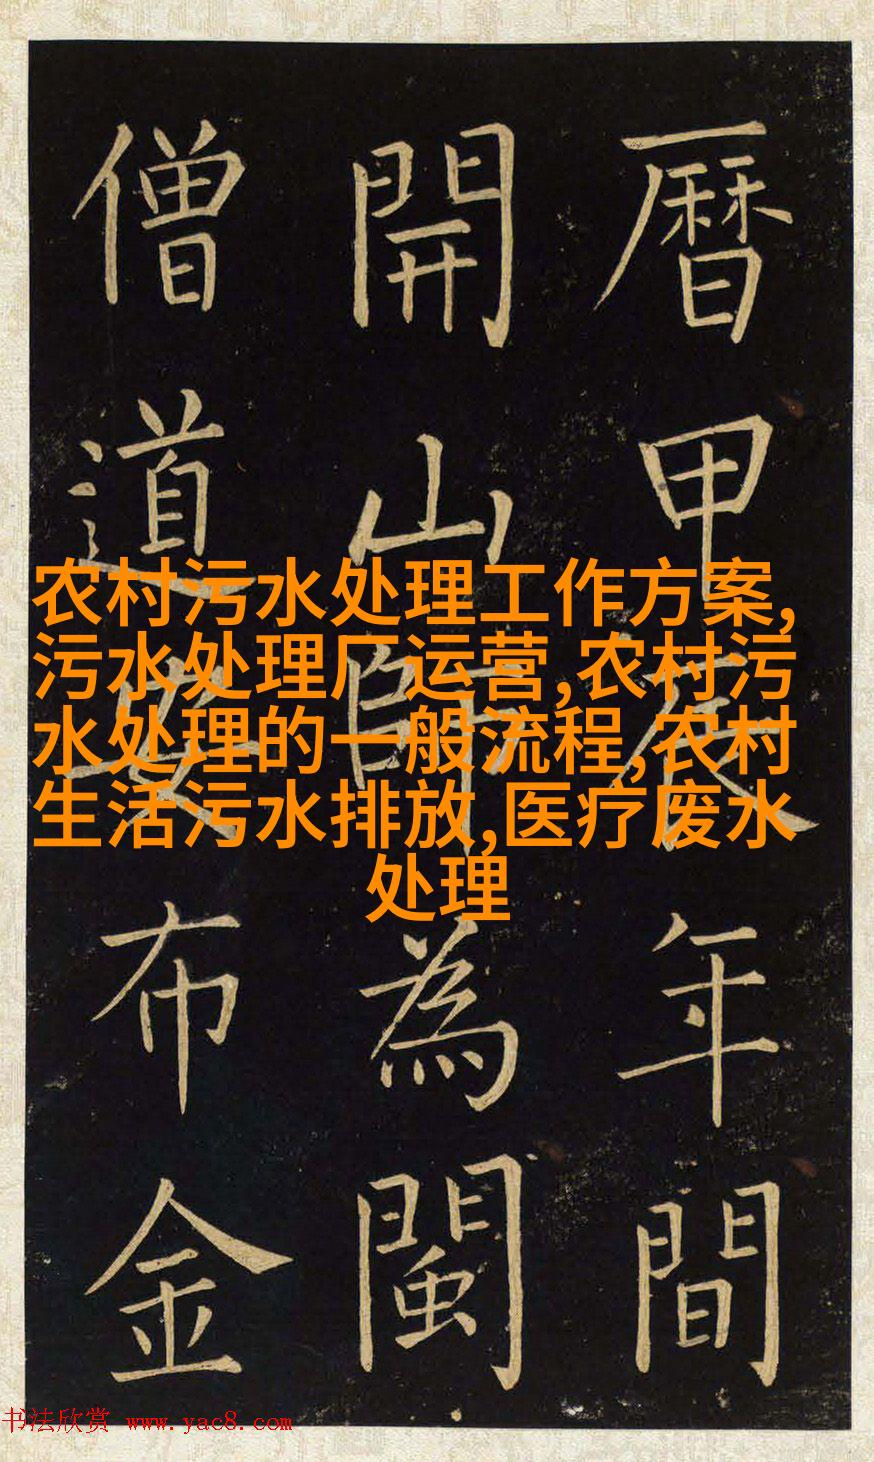 曆甲辰年間
開山師為閩
僧道布金
农村污水处理工作方案,
污水处理厂运营,农村污
水处理的一般流程,农村
生活污水排放,医疗废水
处理
书法欣赏 www.yac8.com